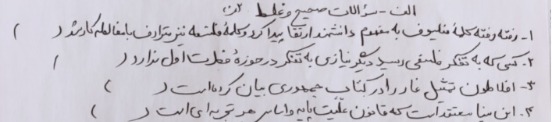 الف - سؤالات صحیح و غلط ۲ن
۱- رفته رفته کلمهٔ فیلسوف به مفهوم دانشمند ارتقا پیدا کرد و کلمهٔ فلسفه نیز مترادف با مغالطه کار شد ( )
۲. کسی که به تفکر فلسفی رسید دیگر نیازی به تفکر در حوزهٔ فطرت اول ندارد ( )
۳- افلاطون تمثیل غار را در کتاب جمهوری بیان کرده است ( )
۴. ابن سینا معتقد است که قانون علیت پایه و اساس هر تجربه ای است ( )